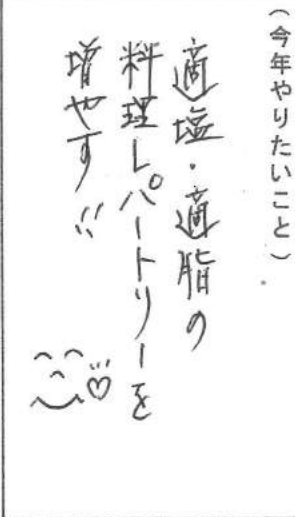 （今年やりたいこと）
適塩・適脂の
料理レパートリーを
増やす